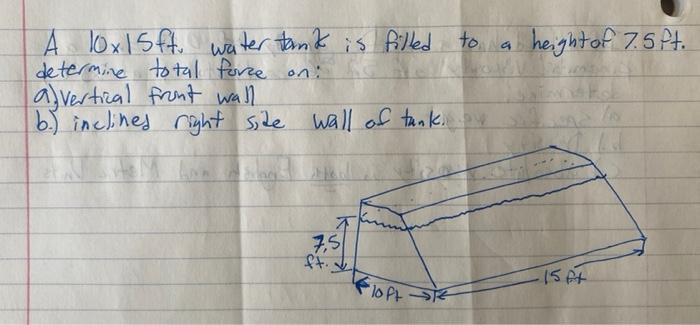 A 10x15ft. water tank is filled to a height of 7.5ft.
determine total force on:
a) vertical front wall
b.) inclined right side wall of tank.
7.5
ft.
10 ft
15 ft